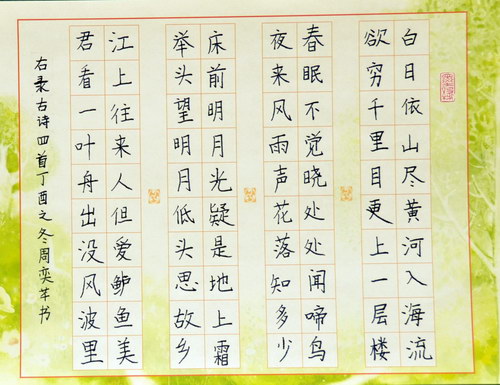 白日依山尽黄河入海流
欲穷千里目更上一层楼
春眠不觉晓处处闻啼鸟
夜来风雨声花落知多少
床前明月光疑是地上霜
举头望明月低头思故乡
江上往来人但爱鲈鱼美
君看一叶舟出没风波里
右录古诗四首丁酉之冬周奕芊书